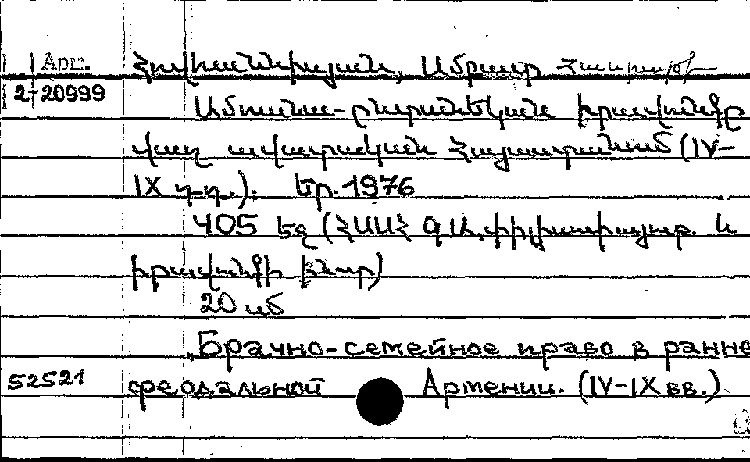 Арм. Հովհաննիսյան, Սմբատ
2-20999
Ամուսնա-ընտանեկան իրավունքը
վաղ ավատական Հայաստանում (IV-
IX դ.դ.): Եր. 1976
405 եզ (ՀՍՍՀ ԳԱ, փիլիսոփայութ. և
իրավունքի ինստ)
20 սմ
Брачно-семейное право в ранне
52521 феодальной Армении. (IV-IX вв.)